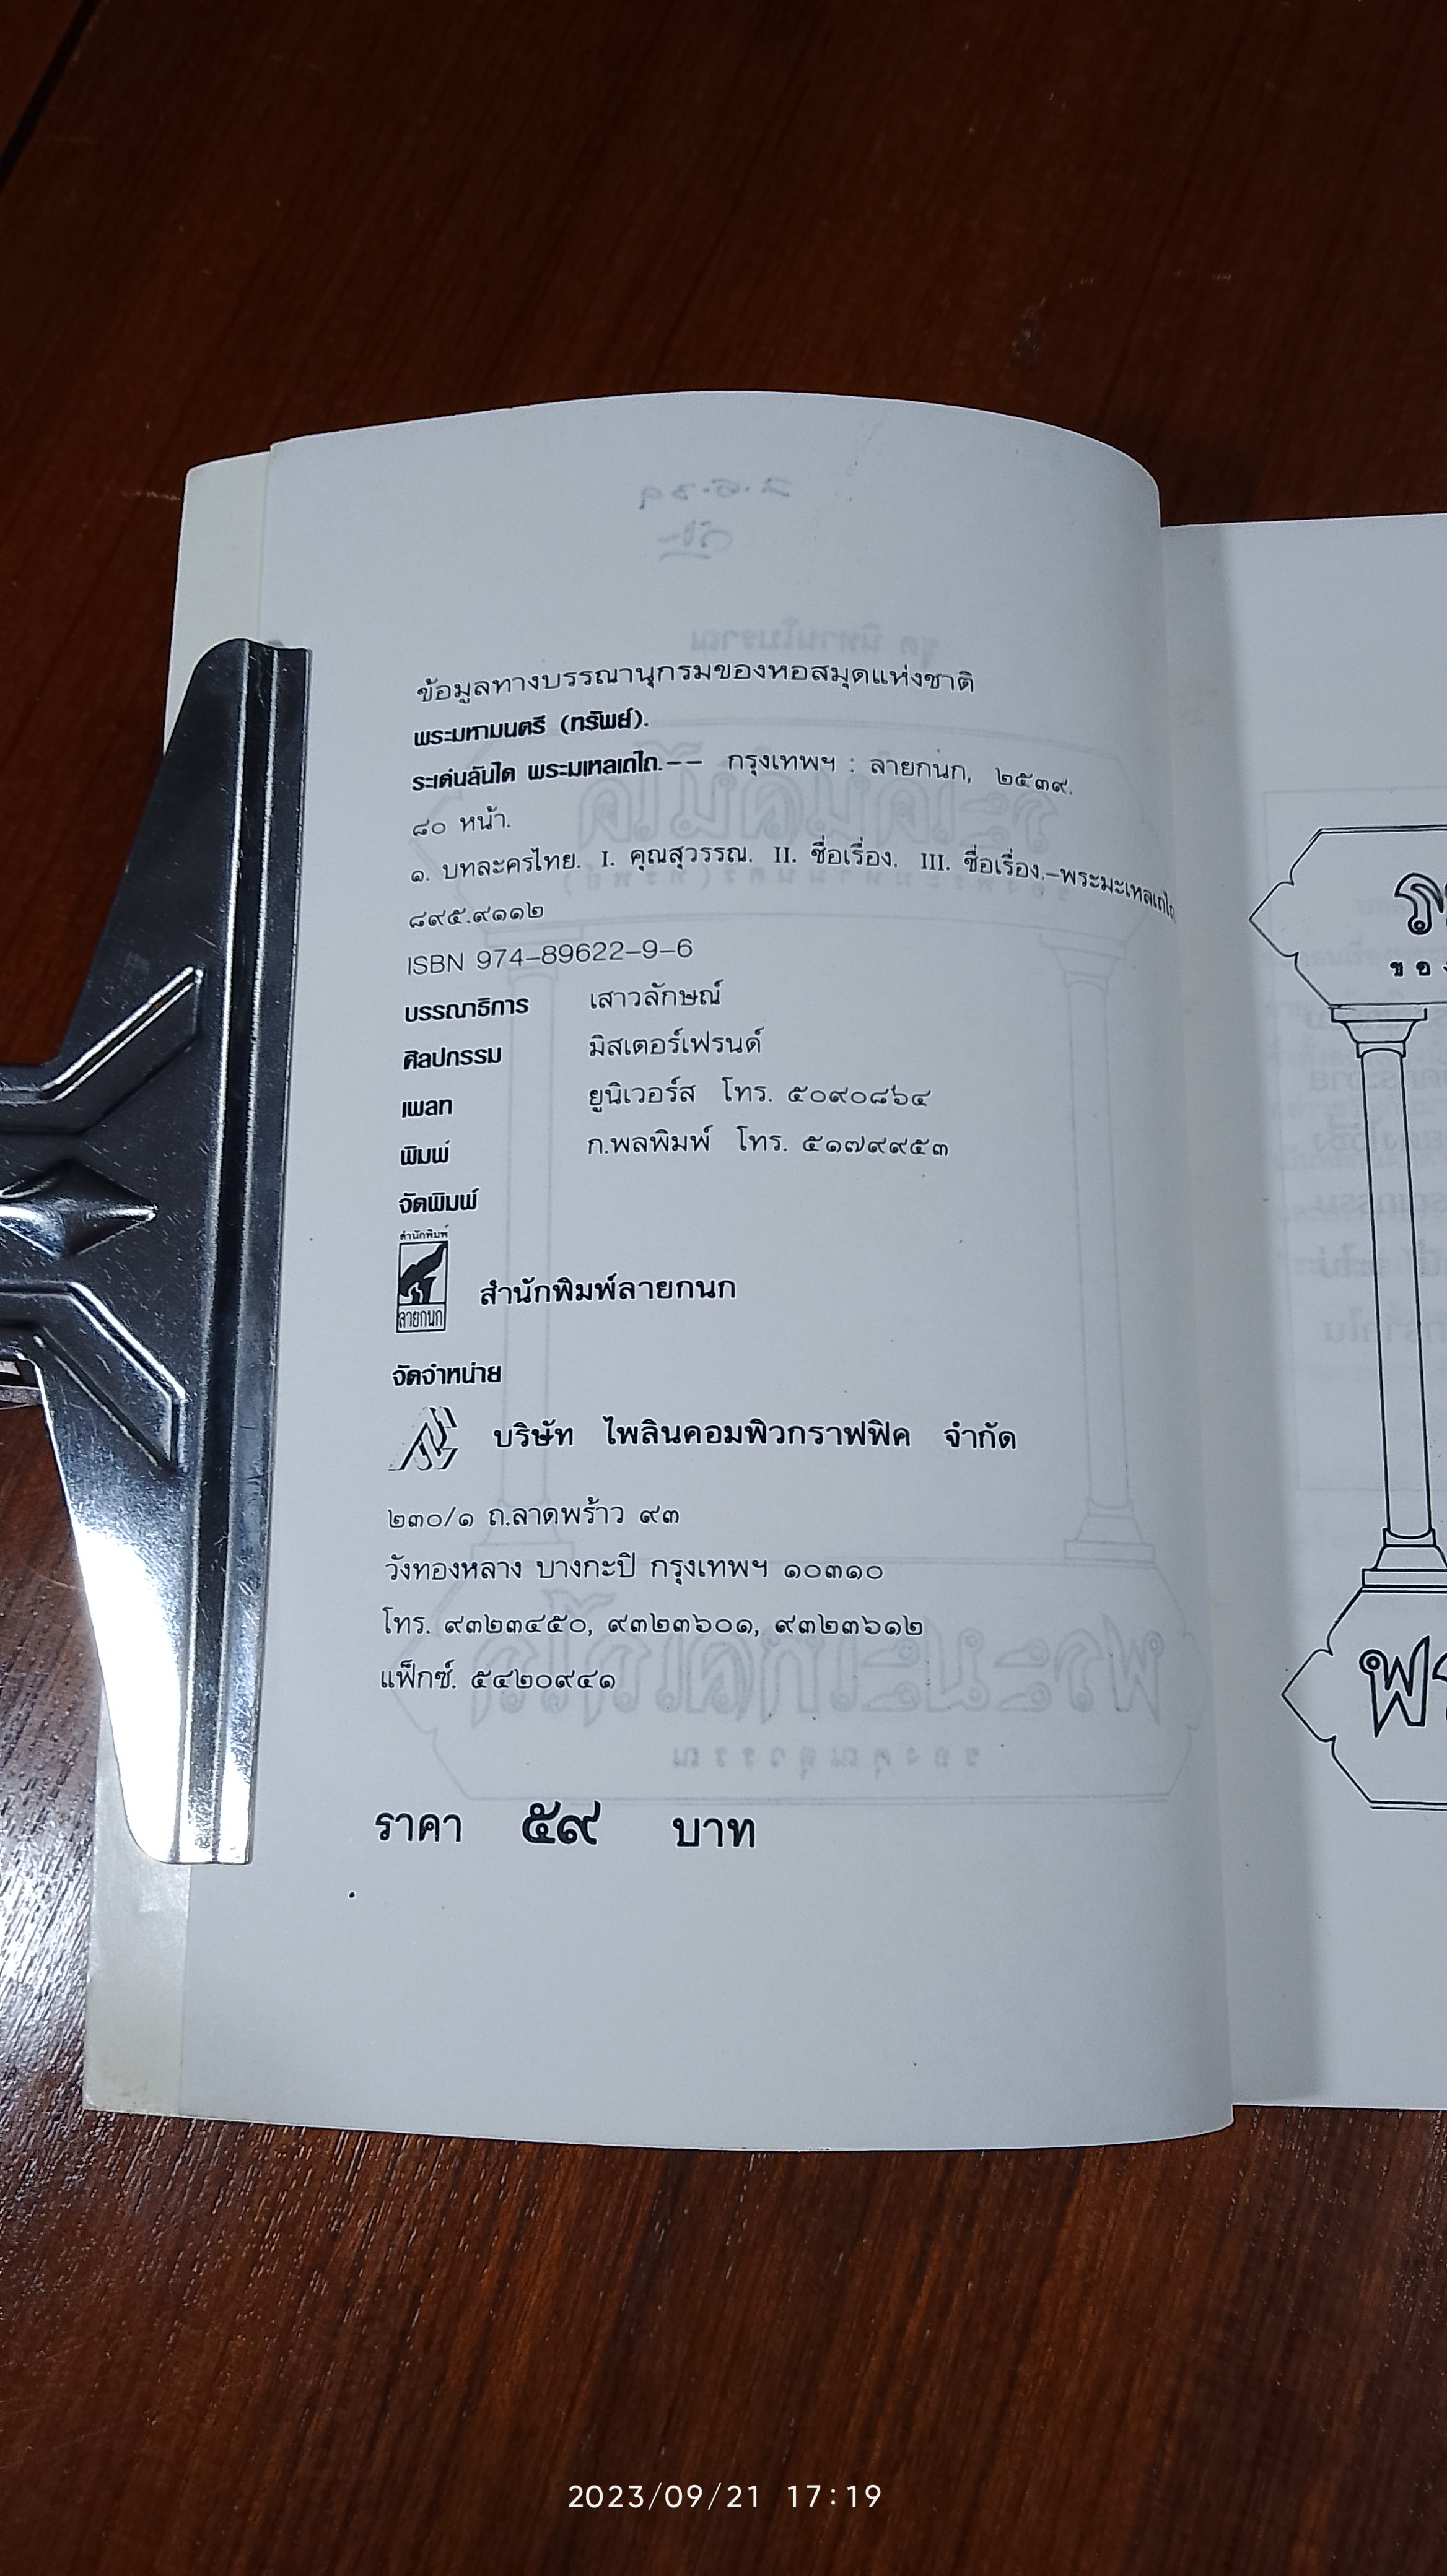 ข้อมูลทางบรรณานุกรมของหอสมุดแห่งชาติ
พระมหามนตรี (ทรัพย์).
ระเด่นลันได พระมเหลเถไถ.-- กรุงเทพฯ : ลายกนก, ๒๕๓๙.
๘๐ หน้า.
๑. บทละครไทย. I. คุณสุวรรณ. II. ชื่อเรื่อง. III. ชื่อเรื่อง.–พระมะเหลเถไถ
๘๙๕.๙๑๑๒
ISBN 974–89622–9–6
บรรณาธิการ เสาวลักษณ์
ศิลปกรรม มิสเตอร์เฟรนด์
เพลท ยูนิเวอร์ส โทร. ๕๐๙๐๘๖๔
พิมพ์ ก.พลพิมพ์ โทร. ๕๑๗๙๙๕๓
จัดพิมพ์
สำนักพิมพ์
ลายกนก
สำนักพิมพ์ลายกนก
จัดจำหน่าย
บริษัท ไพลินคอมพิวกราฟฟิค จำกัด
๒๓๐/๑ ถ.ลาดพร้าว ๙๓
วังทองหลาง บางกะปิ กรุงเทพฯ ๑๐๓๑๐
โทร. ๙๓๒๓๔๕๐, ๙๓๒๓๖๐๑, ๙๓๒๓๖๑๒
แฟ็กซ์. ๕๔๒๐๙๔๑
ราคา ๕๙ บาท
2023/09/21 17:19